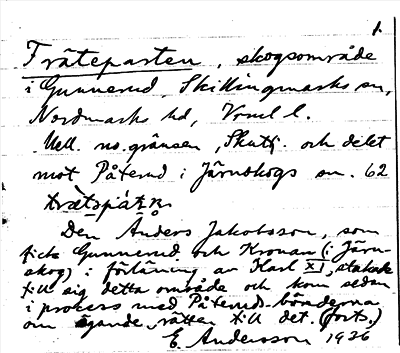 1.
Träteparten, skogsområde
i Gunnerud, Skillingmarks sn,
Nordmarks hd, Vrml l.
Mell. no. gränsen, Skutt. och delet
mot Påterud i Järnskogs sn. 62
trätspáṭṇ
Den Anders Jakobsson, som
fick Gunnerud och Kronan (i Järn-
skog) i förläning av Karl XI, stakade
till sig detta område och kom sedan
i process med Påteruds-bönderna
om äganderätten till det. (forts.)
E. Andersson 1936